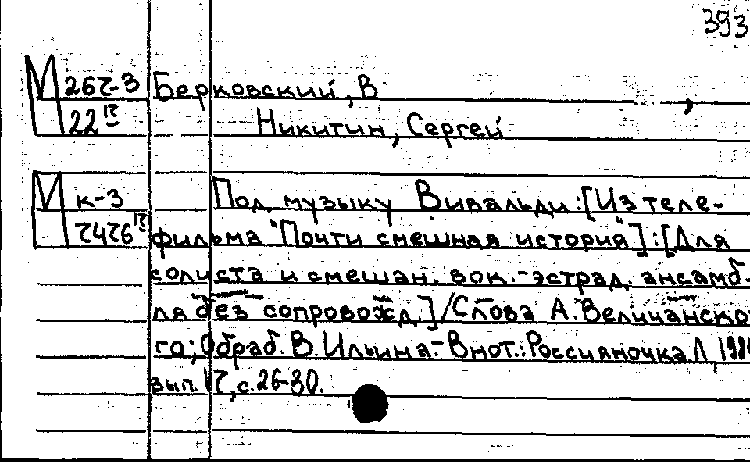 393
М 26г-3 Берковский, В
22 Никитин, Сергей
М к-3 Под музыку Вивальди:[Из теле-
фильма "Почти смешная история"]:[Для
солиста и смешан. вок.-эстрад. ансамб-
ля без сопровожд.]/Слова А.Величанско-
го; Обраб. В. Ильина.-В нот.: Россияночка.Л.,
вып. 17, с. 26-30.